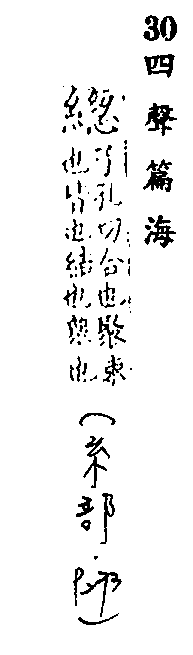 30四聲篇海
緫子孔切合也聚束
也皆也結也也
(糸部)